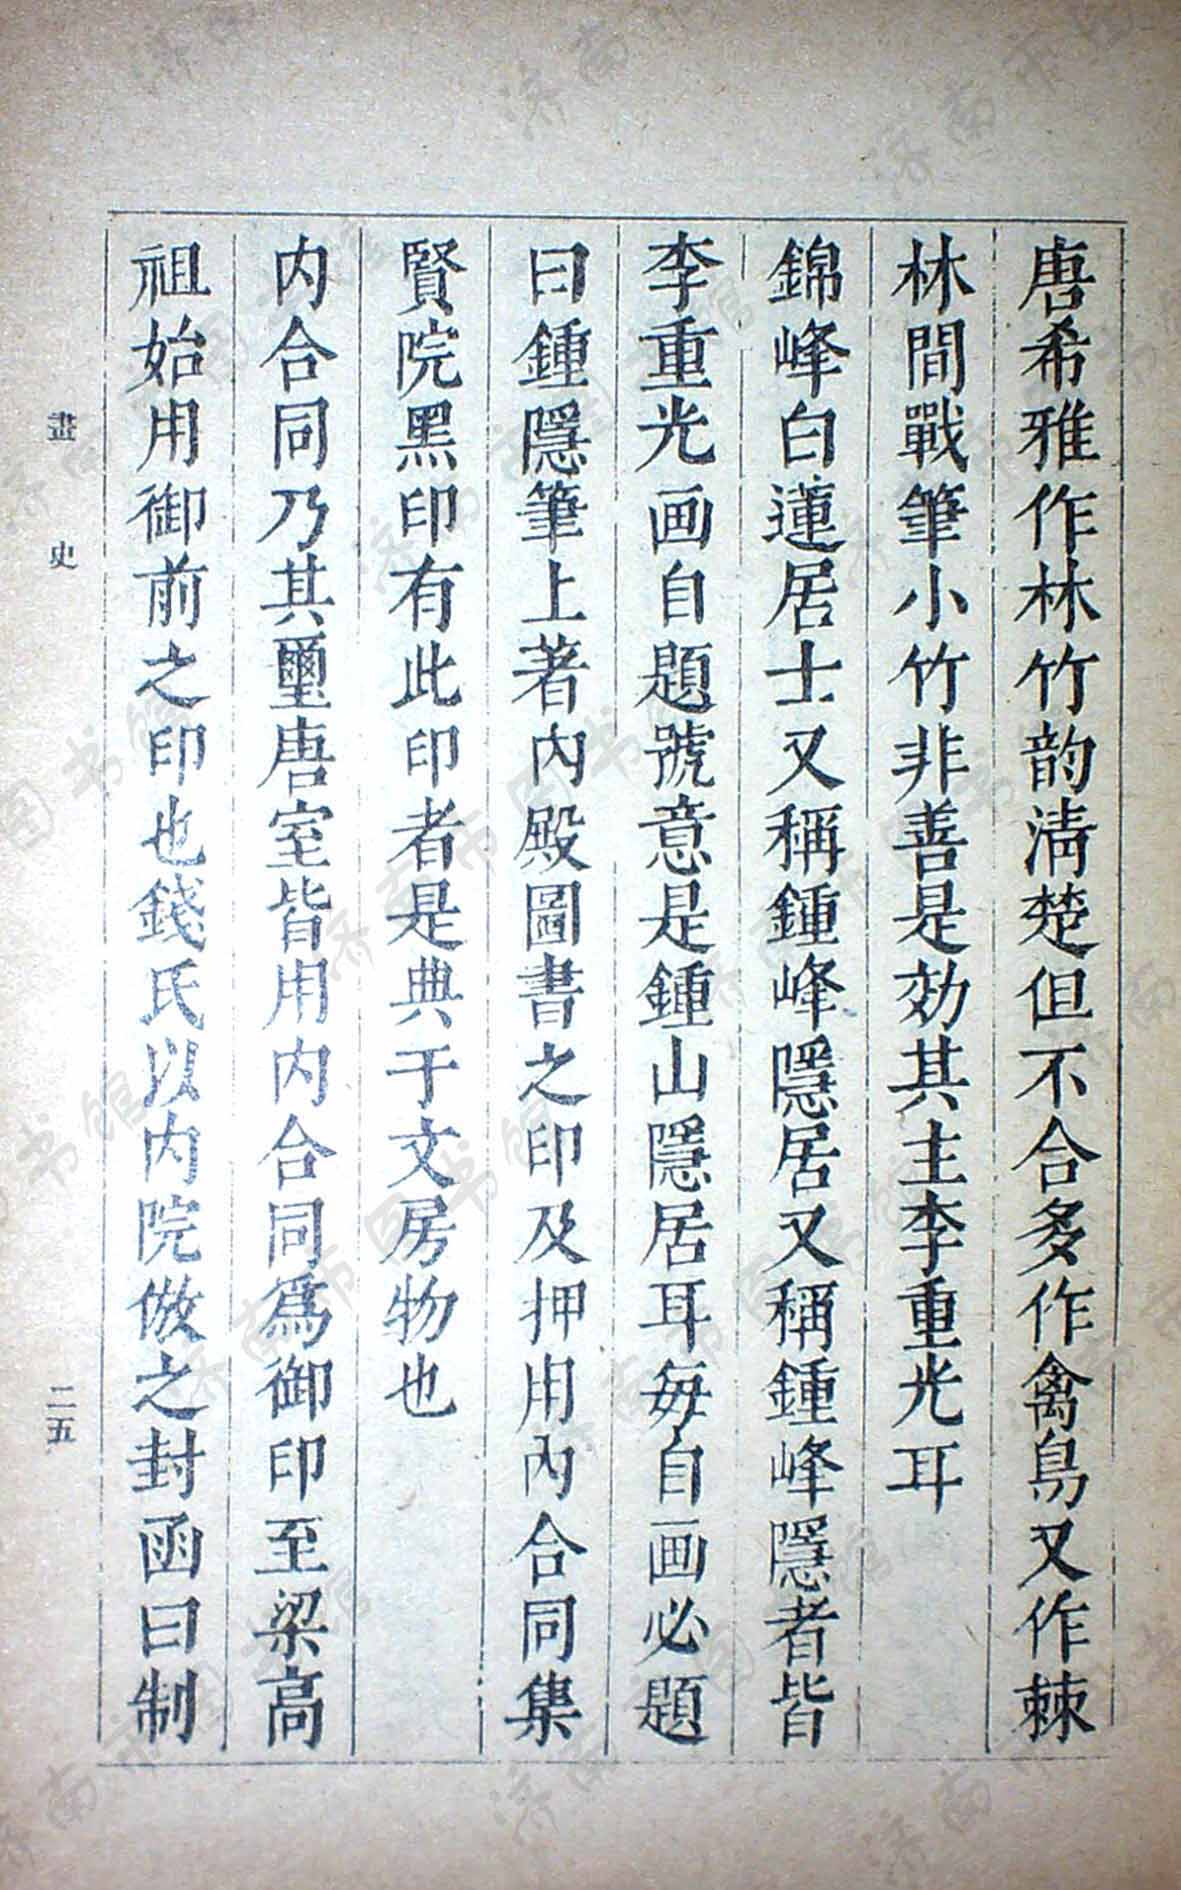 唐希雅作林竹韵淸楚但不合多作禽鳥又作棘
林間戰筆小竹非善是効其主李重光耳
錦峰白蓮居士又稱鍾峰隱居又稱鍾峰隱者皆
李重光画自題號意是鍾山隱居耳每自画必題
曰鍾隱筆上著內殿圖書之印及押用內合同集
賢院黑印有此印者是典于文房物也
内合同乃其璽唐室皆用内合同爲御印至梁高
祖始用御前之印也錢氏以内院倣之封函曰制
畫史
二五